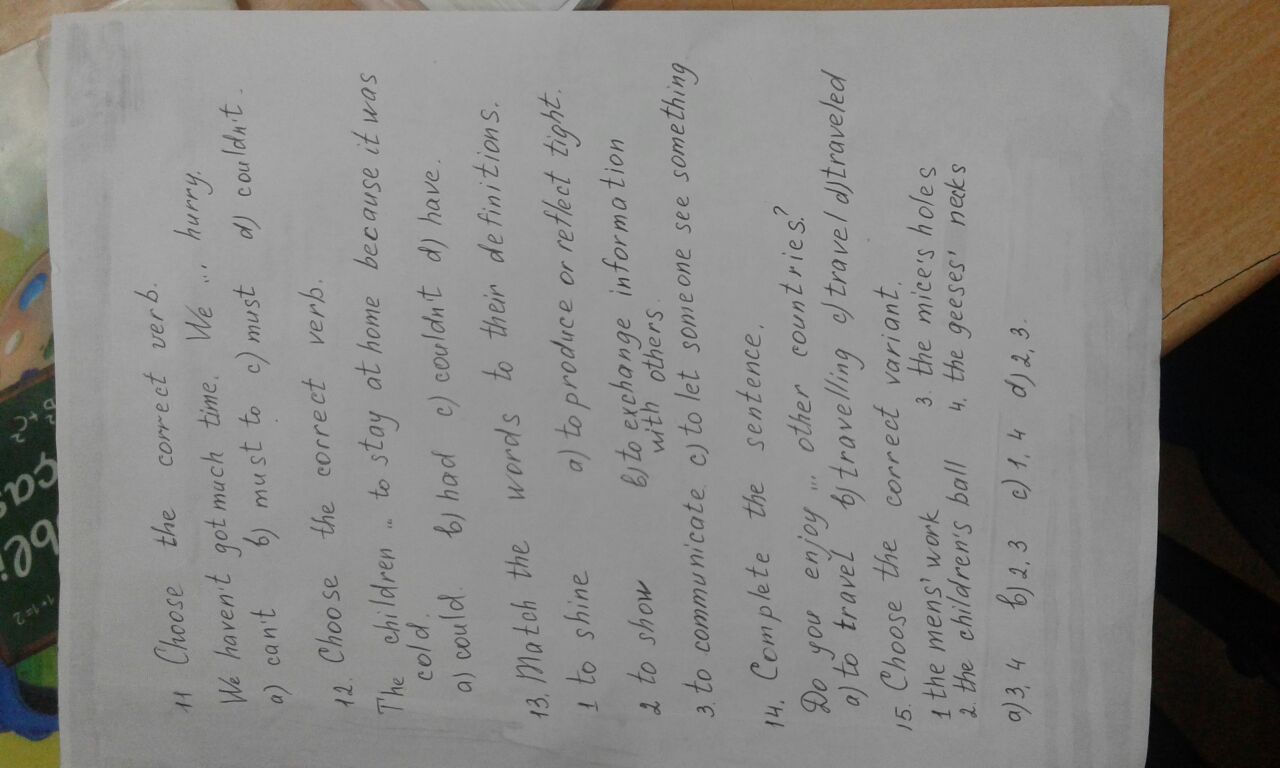 11 Choose the correct verb.
We haven't got much time. We ... hurry.
a) can't b) must to c) must d) couldn't.
12. Choose the correct verb.
The children .. to stay at home because it was
cold.
a) could b) had c) couldn't d) have.
13. Match the words to their definitions.
1 to shine a) to produce or reflect tight.
2 to show b) to exchange information
with others
3. to communicate c) to let someone see something
14. Complete the sentence.
Do you enjoy ... other countries?
a) to travel b) travelling c) travel d) traveled
15. Choose the correct variant.
1 the mens' work 3. the mice's holes
2. the children's ball 4. the geeses' necks
a) 3, 4 b) 2,3 c) 1, 4 d) 2, 3.
1+1=2